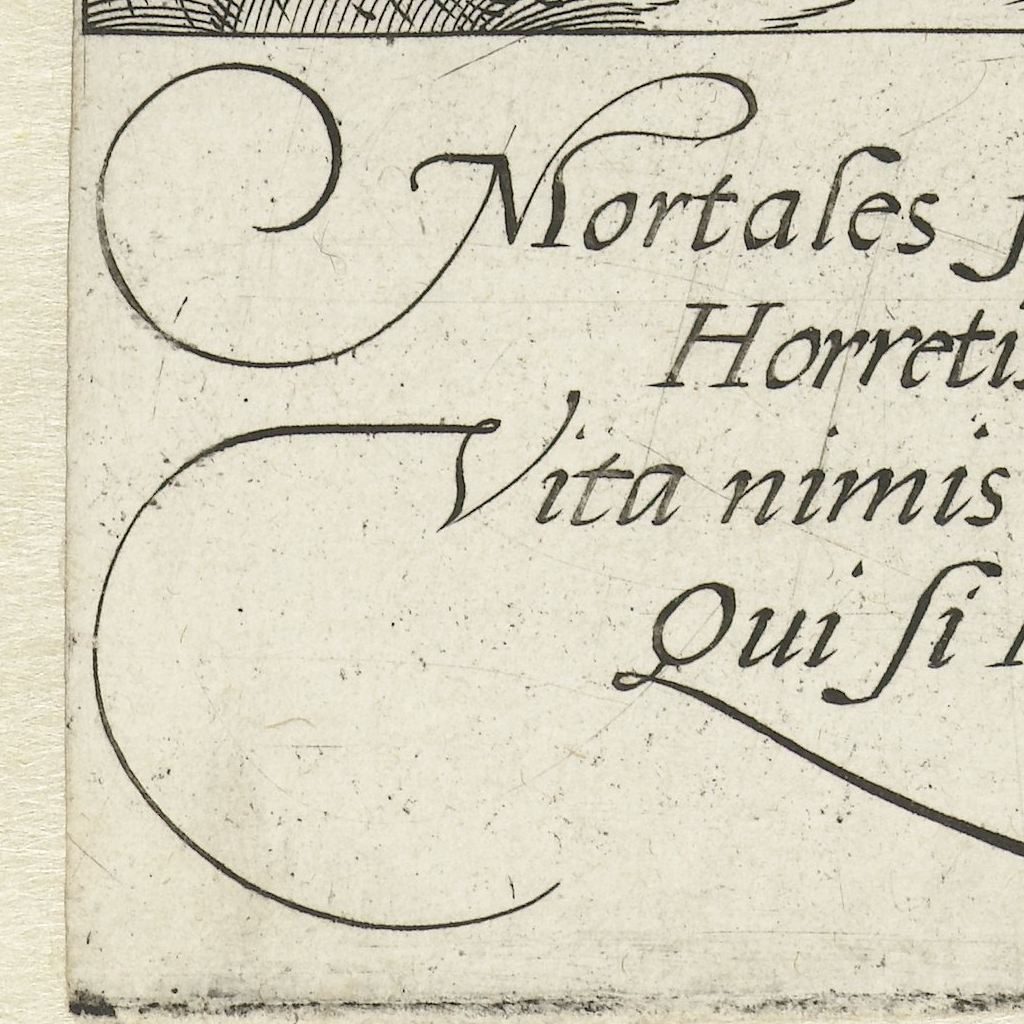 Mortales
Horretis
Vita nimis
Qui ſi